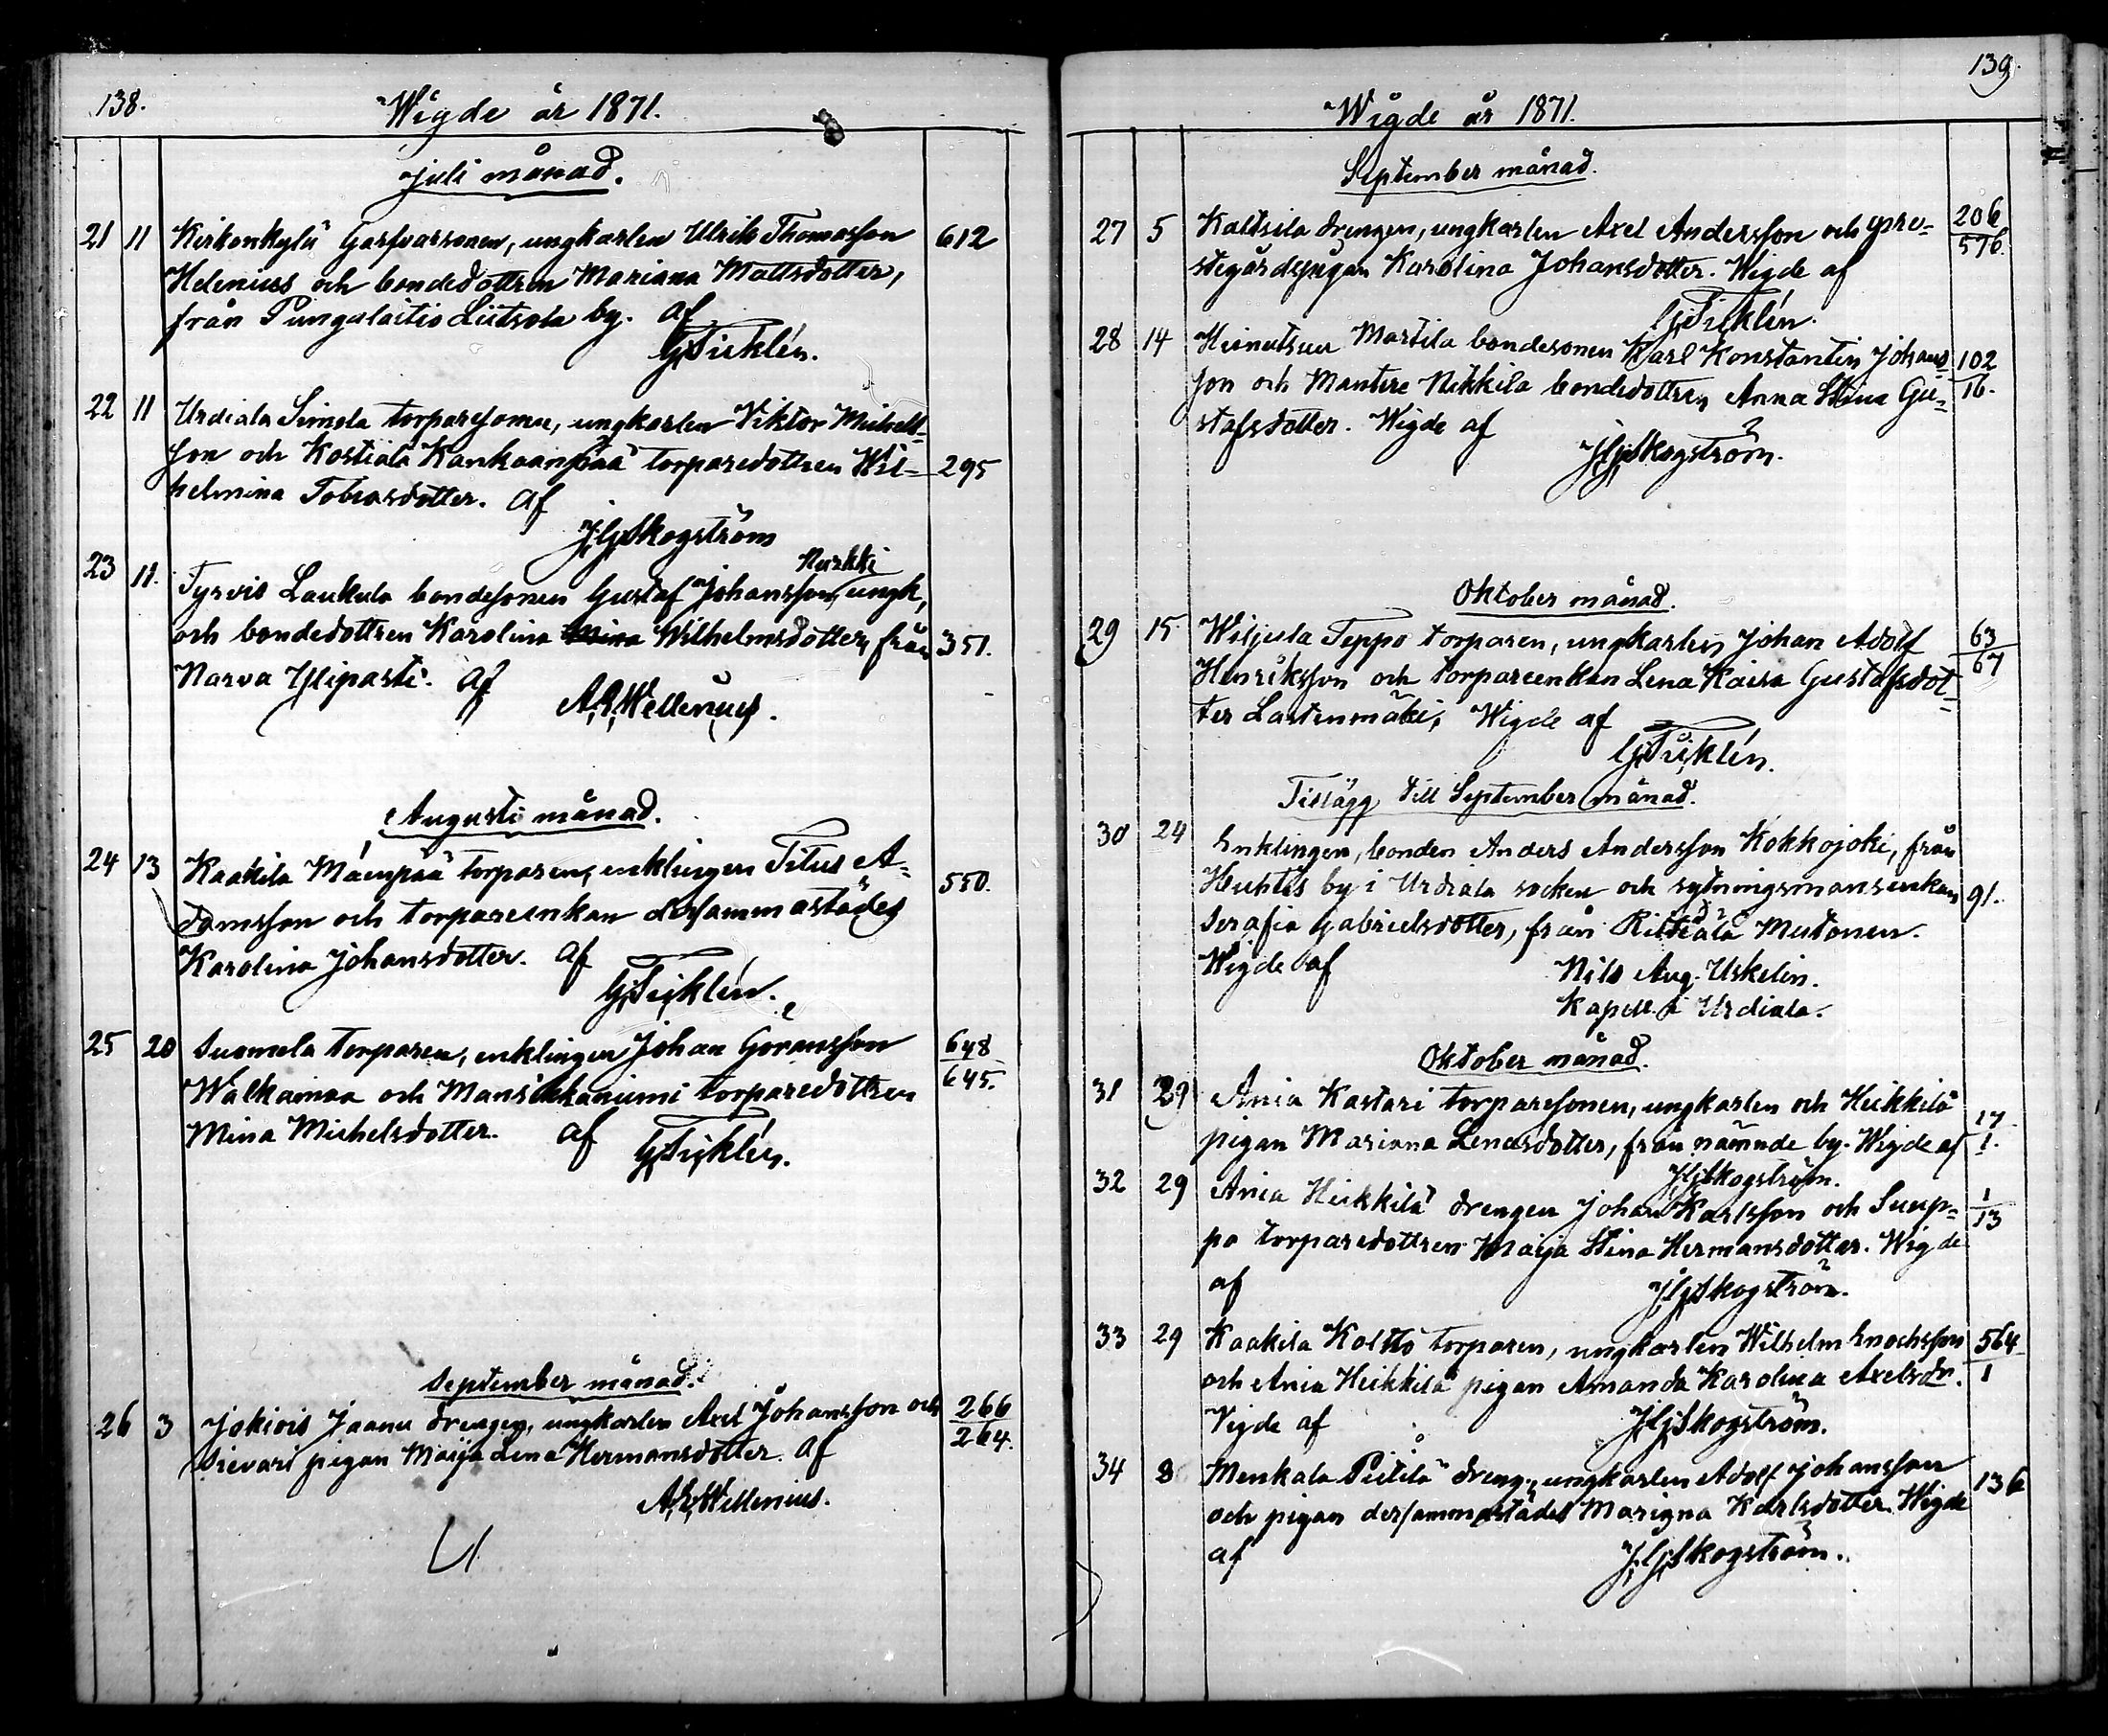 138.
Wigde år 1871.
Juli månad.
21 11 Kirkonkylä Garfvaresonen, ungkarlen Ulrik Thomasson 612
Helenius och bondedottren Mariana Mattsdotter,
från Pungalaitio Liitsola by. Af
G. Ticklén.
22 11 Urdiala Simola torparesonen, ungkarlen Viktor Michels-
son och Kostiala Kankaanpää torparedottren Wil- 295
helmina Tobiasdotter. Af
J. G. Skogström
Nurkki
23 11. Tyrvis Laukula bondesonen Gustaf Johansson, ungk,
och bondedottren Karolina Mina Wilhelmsdotter, från 351.
Narva Yliparti. Af
A. E. Wellenius.
Augusti månad.
24 13 Kaakila Mäenpää torparen, enklingen Titus A-
damsson och torpareenkan dersammastädes 550.
Karolina Johansdotter. Af
G. Ticklén.
25 20 Suomela torparen, enklingen Johan Göransson 648
Walkamaa och Mansikkaniemi torparedottren 645.
Mina Michelsdotter. Af
G. Ticklén.
September månad.
26 3 Jokiois Jaanu drengen, ungkarlen Axel Johansson och 266
Sievari pigan Maija Lena Hermansdotter. Af 264.
A. E. Wellenius.
139.
Wigde år 1871.
September månad.
27 5 Kaltsila drengen, ungkarlen Axel Andersson och pro- 206
stegårdspigan Karolina Johansdotter. Wigde af 576.
G. Ticklén.
28 14 Martila bondesonen Karl Konstantin Johans- 102
son och Mantere Nikkilä bondedottren Anna Stina Gu- 16.
stafsdotter. Wigde af
J. G. Skogström.
Oktober månad.
29 15 Wiljula Teppo torparen, ungkarlen Johan Adolf 63
Henriksson och torpareenkan Lena Kaisa Gustafsdot- 67
ter Lastenmäki, Wigde af
G. Ticklén.
Tillägg till September månad.
30 24 Enklingen, bonden Anders Andersson Kokkojoki, från
Huhtis by i Urdiala socken och sytningsmansenkan 91.
Serafia Gabrielsdotter, från Rittiälä Mutonen.
Wigde af Nils Aug. Uskelin.
Kapell. i Urdiala.
Oktober månad.
31 29 Ania Kastari torparesonen, ungkarlen och Heikkilä 17
pigan Marianna Lenasdotter, från nämnde by. Wigde af 1.
J. G. Skogström.
32 29 Ania Heikkilä drengen Johan Karlsson och Seup- 1
po torparedottren Maija Stina Hermansdotter. Wigde 13
af J. G. Skogström.
33 29 Kaakila Koltto torparen, ungkarlen Wilhelm Enochsson 564
och Ania Heikkilä pigan Amanda Karolina Axelsdr. 1
Vigde af J. G. Skogström.
34 8 Menkala Pietilä dreng, ungkarlen Adolf Johansson 136
och pigan dersammastädes Marigna Karlsdotter. Wigde
af J. G. Skogström.